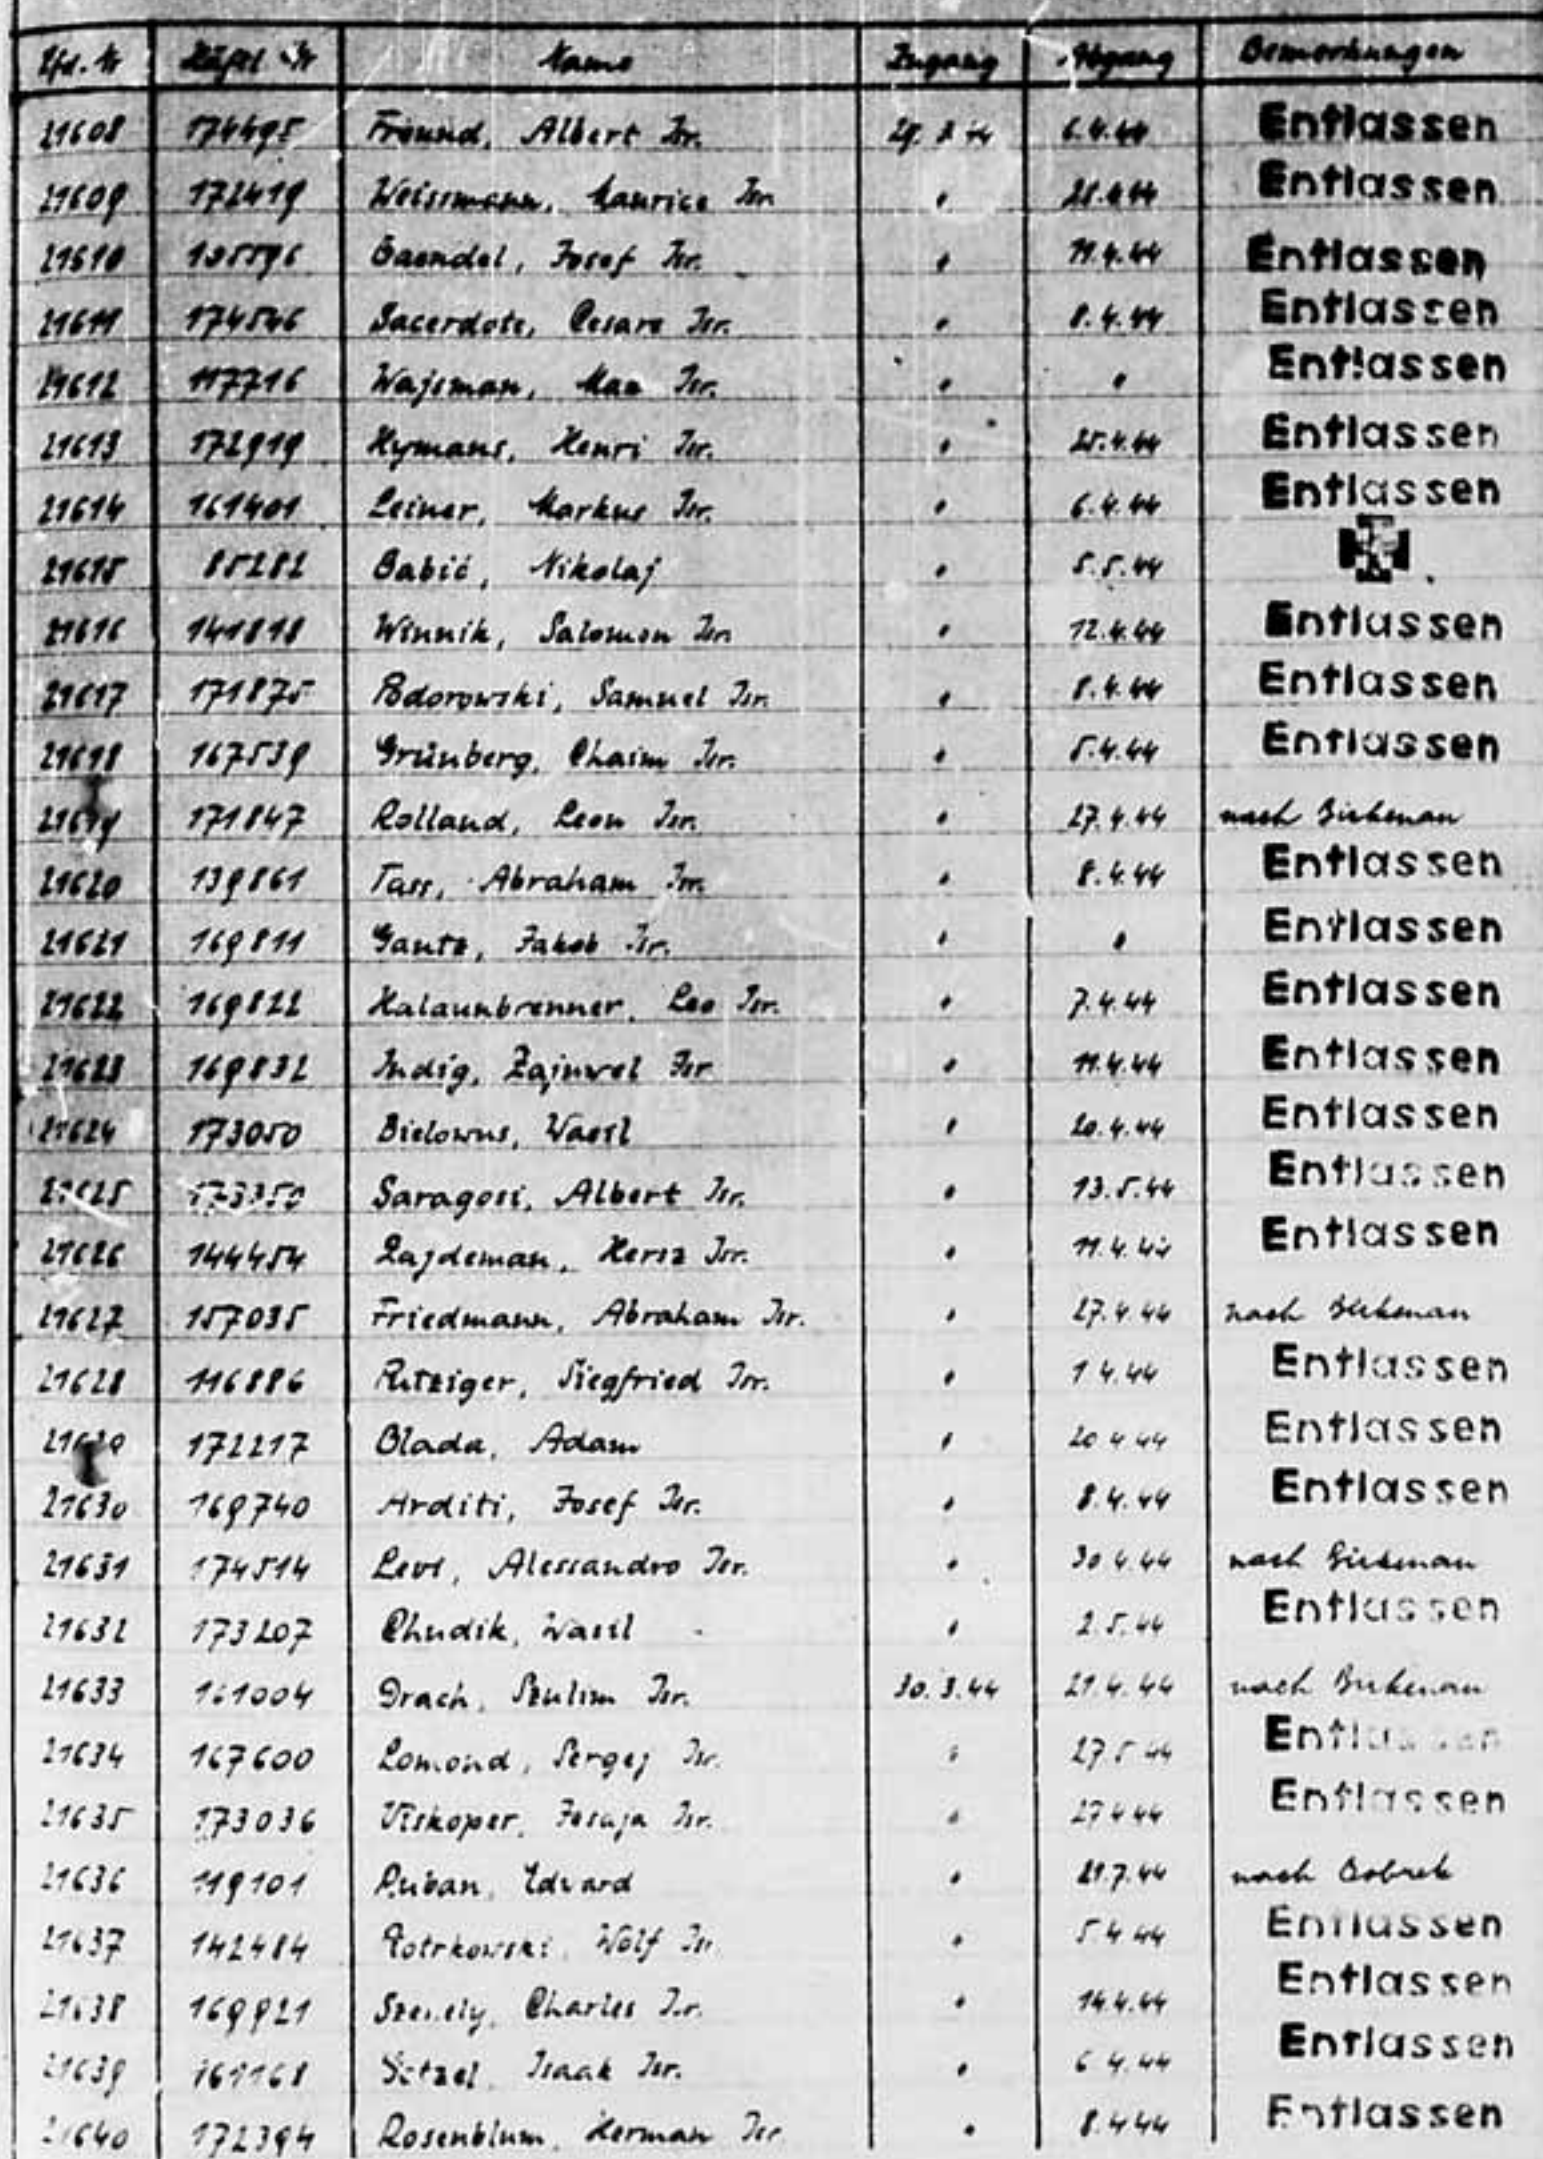 Lfd. Nr Häftl. Nr Name Zugang Abgang Bemerkungen
21608 174495 Freund, Albert Isr. 29. 3 44 6.4.44 Entlassen
21609 172419 Weissmann, Maurice Isr. " 28.4.44 Entlassen
21610 Baendel, Josef Isr. " 11.4.44 Entlassen
21611 174546 Sacerdote, Cesare Isr. " 8.4.44 Entlassen
21612 117716 Wajsman, Max Isr. " " Entlassen
21613 172919 Hymans, Henri Isr. " 25.4.44 Entlassen
21614 161401 Leiner, Markus Isr. " 6.4.44 Entlassen
21615 85282 Babić, Nikolaj " 5.5.44
21616 141818 Winnik, Salomon Isr. " 12.4.44 Entlassen
21617 171875 Podorowski, Samuel Isr. " 8.4.44 Entlassen
21618 167539 Grünberg, Chaim Isr. " 5.4.44 Entlassen
21619 171847 Rolland, Leon Isr. " 27.4.44 nach Birkenau
21620 139861 Tass, Abraham Isr. " 8.4.44 Entlassen
21621 169811 Gantz, Jakob Isr. " " Entlassen
21622 169822 Halaunbrenner, Leo Isr. " 7.4.44 Entlassen
21623 169832 Indig, Zajnwel Isr. " 11.4.44 Entlassen
21624 173050 Bielowus, Wasil " 20.4.44 Entlassen
21625 173350 Saragosi, Albert Isr. " 13.5.44 Entlassen
21626 144454 Zajdeman, Hersz Isr. " 11.4.44 Entlassen
21627 157035 Friedmann, Abraham Isr. " 27.4.44 nach Birkenau
21628 116886 Ritziger, Siegfried Isr. " 1 4.44 Entlassen
21629 172217 Blada, Adam " 20 4 44 Entlassen
21630 169740 Arditi, Josef Isr. " 8.4.44 Entlassen
21631 174514 Levi, Alessandro Isr. " 30 4.44 nach Birkenau
21632 173207 Chudik, Wasil " 2.5.44 Entlassen
21633 161004 Drach, Szulim Isr. 30.3.44 21.4.44 nach Birkenau
21634 167600 Lomond, Sergej Isr. " 27 5 44 Entlassen
21635 173036 Viskoper, Jesaja Isr. " 27 4 44 Entlassen
21636 119101 Ruban, Edward " 21.7.44 nach Bobrek
21637 142484 Potrkowski, Wolf Isr. " 5 4 44 Entlassen
21638 169921 Charles Isr. " 14.4.44 Entlassen
21639 161168 Isaak Isr. " 6 4.44 Entlassen
21640 172394 Rosenblum, Herman Isr. " 8.4 44 Entlassen